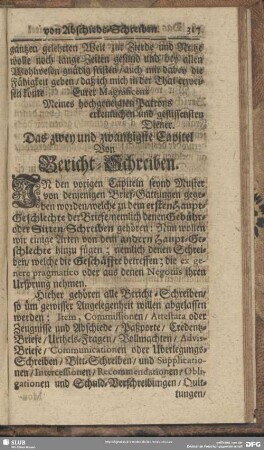 von Abschieds-Schreiben. 317
gantzen gelehrten Welt zur Zierde und Nutz
wolle noch lange Zeiten gesund und bey allem
Wohlwesen gnädig fristen/ auch mir dabey die
Fähigkeit geben/ daß ich mich in der That erwei-
sen könte Eurer Magnificenz
Meines hochgeneigten Patrons
erkenntlichen und geflissensten
Diener.
Das zwey und zwantzigste Capitel
Von
Bericht-Schreiben.
IN den vorigen Capiteln seynd Muster
von denjenigen Brief-Gattungen gege-
ben worden/ welche zu dem ersten Haupt-
Geschlechte der Briefe/ nemlich denen Gebühr-
oder Sitten-Schreiben gehören: Nun wollen
wir einige Arten von dem andern Haupt-Ge-
schlechte hinzu fügen; nemlich denen Schrei-
ben/ welche die Geschäffte betreffen; die ex ge-
nere pragmatico oder aus denen Negotiis ihren
Ursprung nehmen.
Hieher gehören alle Bericht-Schreiben/
so üm gewisser Angelegenheit willen abgelassen
werden: Item, Commissionen/ Attestata oder
Zeugnisse und Abschiede/ Paßporte/ Credentz-
Briefe/ Urthels-Fragen/ Vollmachten/ Advis-
Briefe/ Communicationen oder Uberlegungs-
Schreiben/ Bitt-Schreiben/ und Supplicatio-
nen/ Intercessionen/ Recommendationen/ Obli-
gationen und Schuld-Verschreibungen/ Quit-
tungen/
SLUB